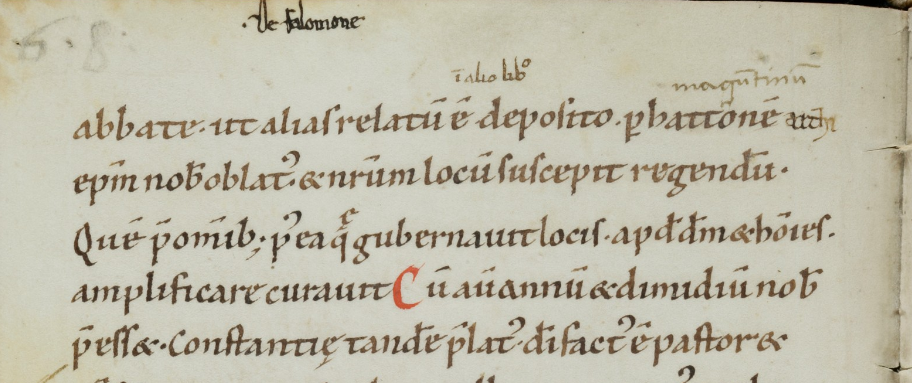 ·de salomone
ī alio libº
magūtinū
abbate· ut alias relatū ē· deposito· ꝑ hattonē
epm̄ nob̄ oblatꝰ· & nr̄um locū suscepit regend̄u·
Quē p̄ om̄ib; p̄ꝰ ea q̄ gubernauit locis· ap d̄ d̄m & hōies·
amplificare curauit Cū aū annū & dimidiū nob̄
p̄ess&· Constantię tand̄e p̄latꝰ· d̄i factꝰ ē pastor &